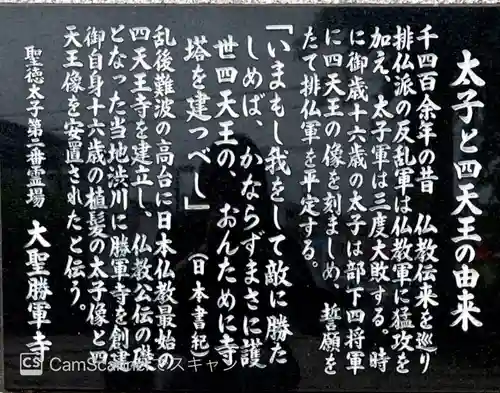 太子と四天王の由来
千四百余年の昔 仏教伝来を巡り
排仏派の反乱軍は仏教軍に猛攻を
加え、太子軍は三度大敗する。時
に御歳十六歳の太子は部下四将軍
に四天王の像を刻ましめ、誓願を
たて排仏軍を平定する。
「いまもし我をして敵に勝た
しめば、かならずまさに護
世四天王の、おんために寺
塔を建つべし」(日本書紀)
乱後難波の高台に日本仏教最初の
四天王寺を建立し、仏教公伝の礎
となった当地渋川に勝軍寺を創建
御自身十六歳の植髪の太子像と四
天王像を安置されたと伝う。
聖徳太子第二番霊場 大聖勝軍寺
CS CamScannerでスキャン